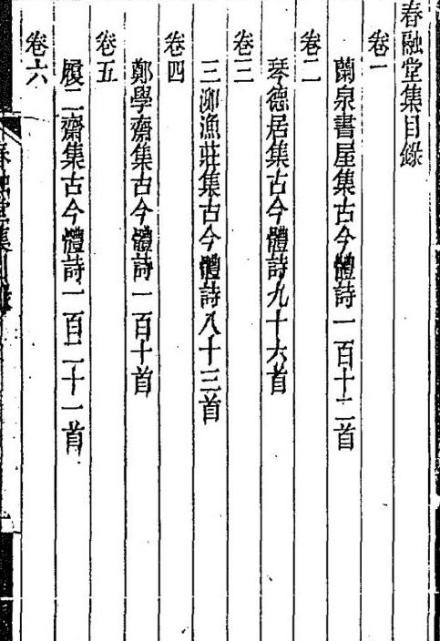 春融堂集目錄
卷一
蘭泉書屋集古今體詩一百十二首
卷二
琴德居集古今體詩九十六首
卷三
三泖漁莊集古今體詩八十三首
卷四
鄭學齋集古今體詩一百十首
卷五
履二齋集古今體詩一百二十一首
卷六
春融堂集